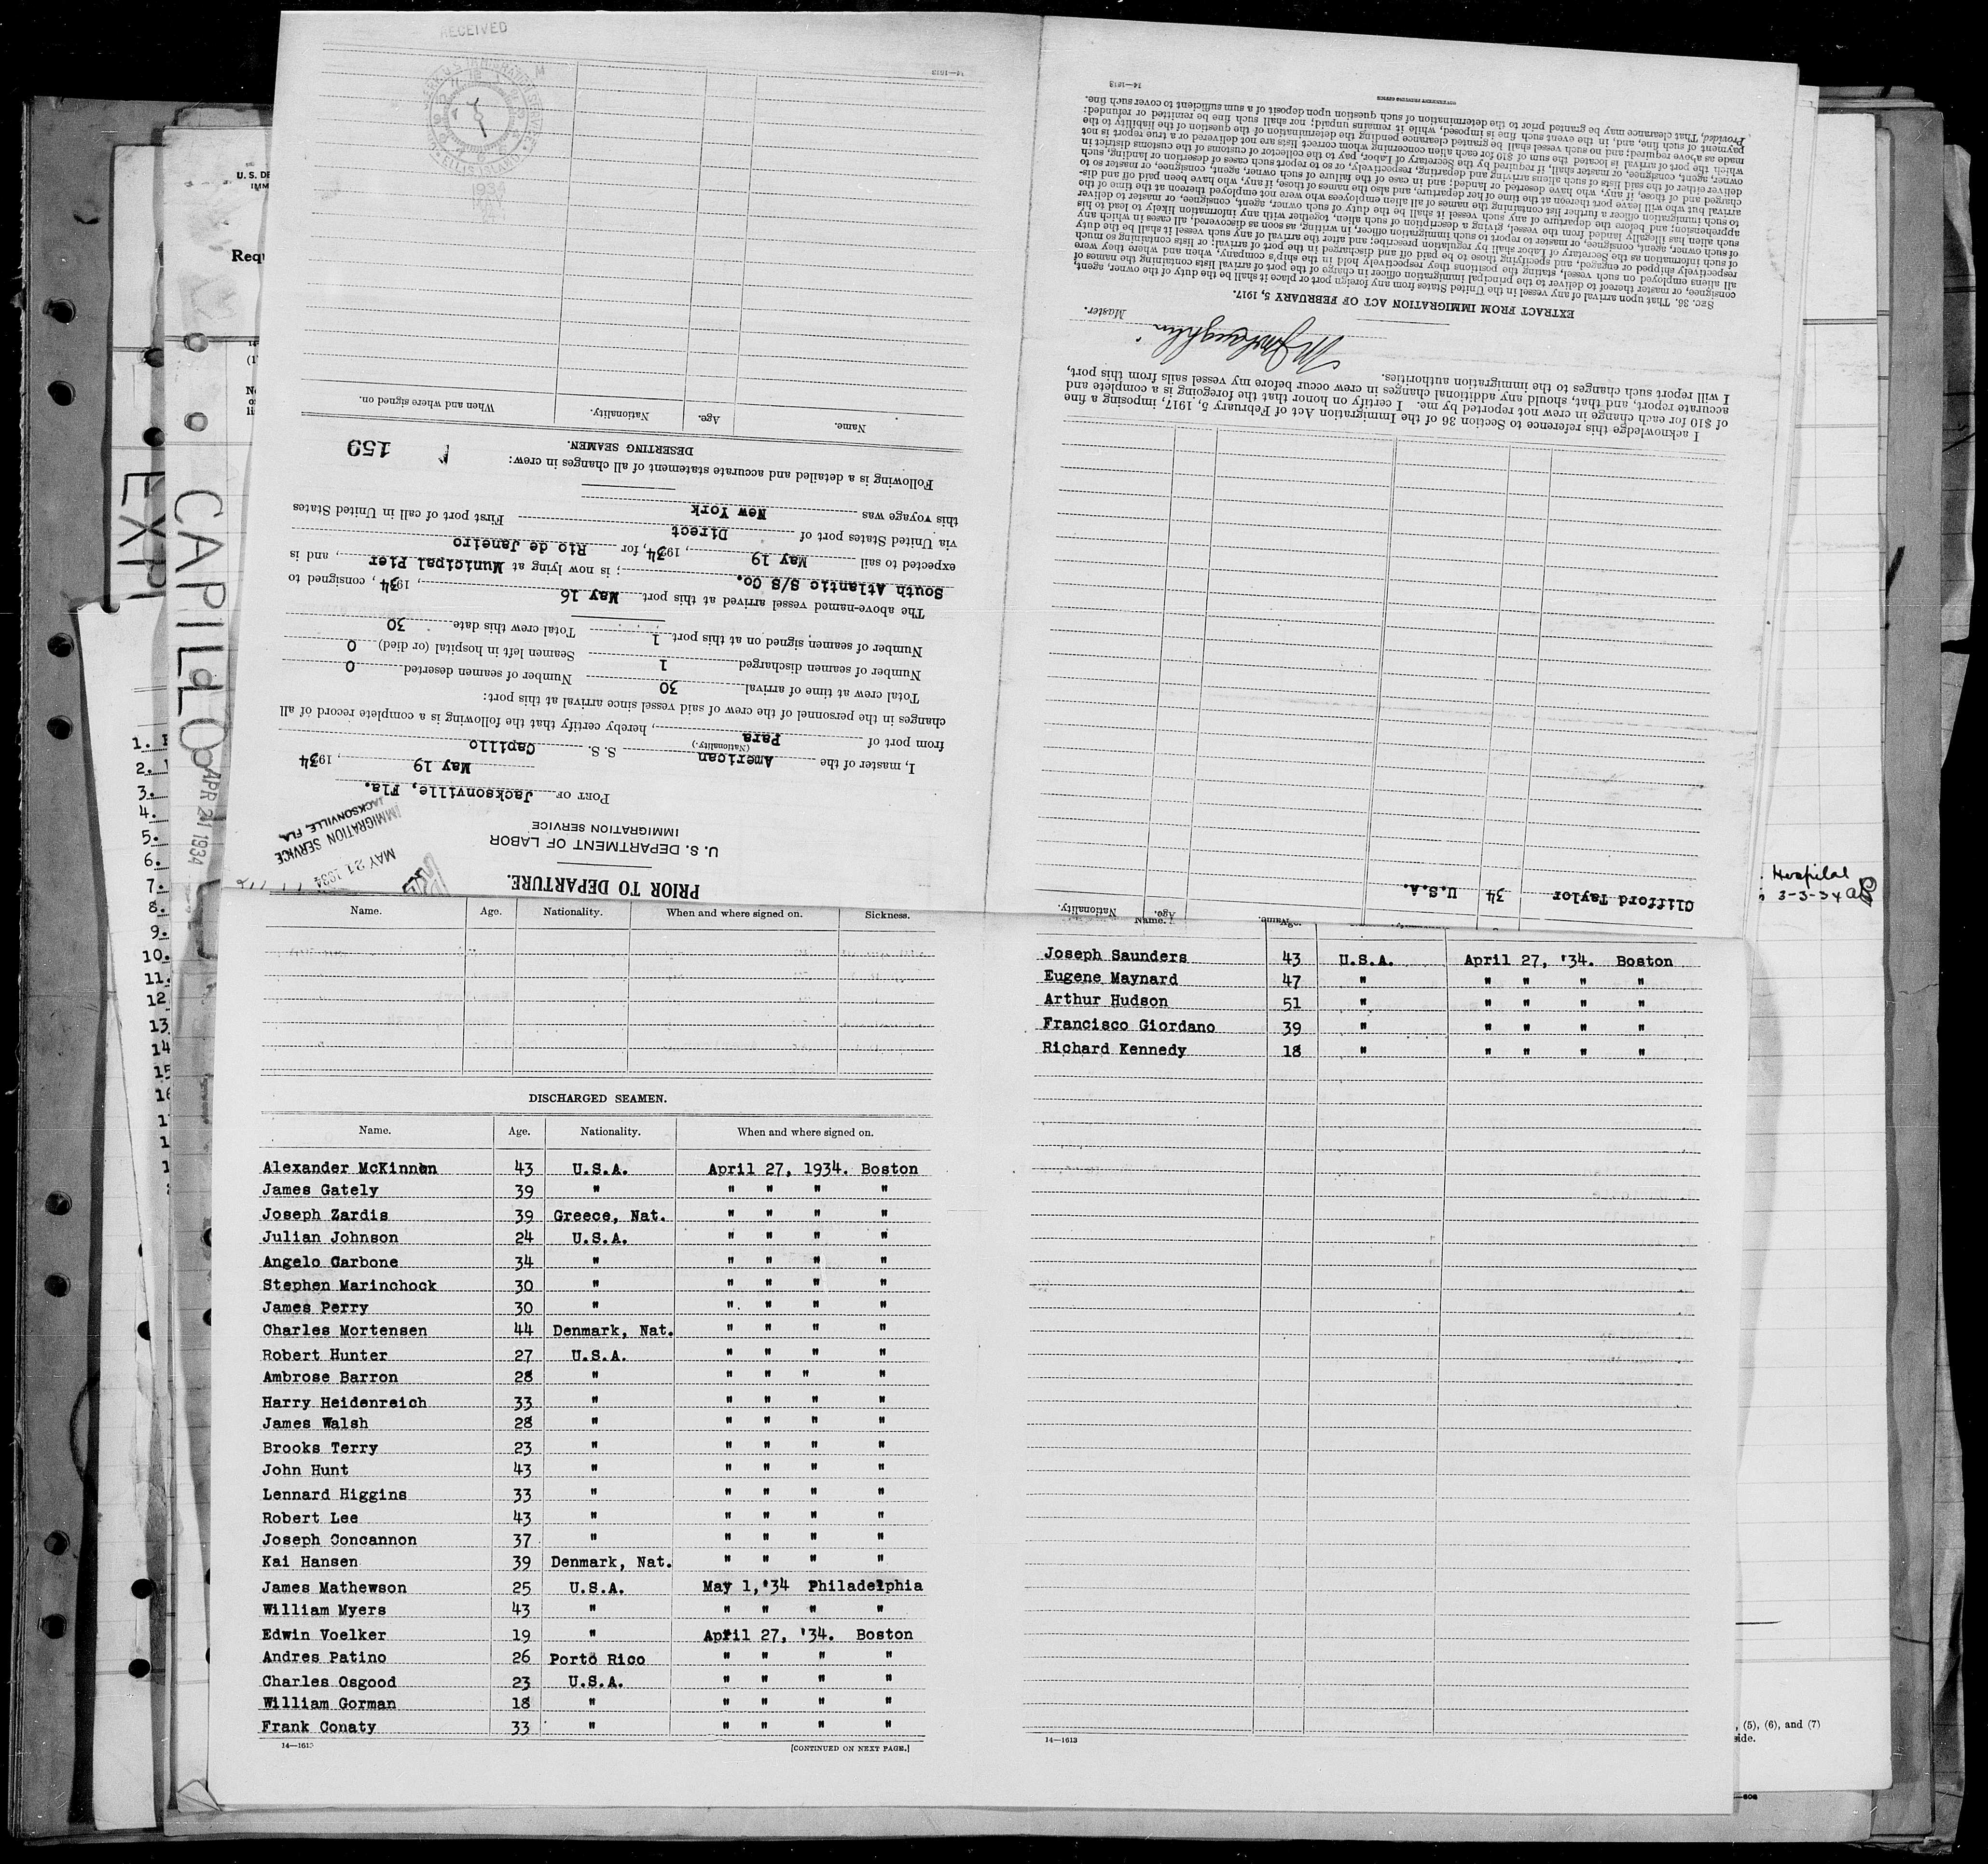 PRIOR TO DEPARTURE.
U. S. DEPARTMENT OF LABOR
IMMIGRATION SERVICE
MAY 21 1934
IMMIGRATION SERVICE
JACKSONVILLE, FLA.
PORT OF Jacksonville, Fla.
May 19, 1934
I, master of the American S. S. Capillo
(Nationality.)
from port of Para, hereby certify that the following is a complete record of all
changes in the personnel of the crew of said vessel since arrival at this port:
Total crew at time of arrival 30 Number of seamen deserted 0
Number of seamen discharged 1 Seamen left in hospital (or died) 0
Number of seamen signed on at this port 1 Total crew this date 30
The above-named vessel arrived at this port May 16, 1934, consigned to
South Atlantic S/S Co.; is now lying at Municipal Pier, and is
expected to sail May 19, 1934, for Rio de Janeiro
via United States port of Direct First port of call in United States
this voyage was New York
Following is a detailed and accurate statement of all changes in crew:
159
DESERTING SEAMEN.
Name. Age. Nationality. When and where signed on.
14—1613
RECEIVED
ELLIS ISLAND
1934
Name. Age. Nationality.
Clifford Taylor 34 U.S.A.
I acknowledge this reference to Section 36 of the Immigration Act of February 5, 1917, imposing a fine
of $10 for each change in crew not reported by me. I certify on honor that the foregoing is a complete and
accurate report, and that, should any additional changes in crew occur before my vessel sails from this port,
I will report such changes to the immigration authorities.
Master.
EXTRACT FROM IMMIGRATION ACT OF FEBRUARY 5, 1917.
SEC. 36. That upon arrival of any vessel in the United States from any foreign port or place it shall be the duty of the owner, agent,
consignee, or master thereof to deliver to the principal immigration officer in charge of the port of arrival lists containing the names of
all aliens employed on such vessel, stating the positions they respectively hold in the ship's company, when and where they were
respectively shipped or engaged, and specifying those to be paid off and discharged in the port of arrival; or lists containing so much
of such information as the Secretary of Labor shall by regulation prescribe; and after the arrival of any such vessel it shall be the duty
of such owner, agent, consignee, or master to report to such immigration officer, in writing, as soon as discovered, all cases in which any
such alien has illegally landed from the vessel, giving a description of such alien, together with any information likely to lead to his
apprehension; and before the departure of any such vessel it shall be the duty of such owner, agent, consignee, or master to deliver
to such immigration officer a further list containing the names of all alien employees who were not employed thereon at the time of the
arrival but who will leave port thereon at the time of her departure, and also the names of those, if any, who have been paid off and dis-
charged and of those, if any, who have deserted or landed; and in case of the failure of such owner, agent, consignee, or master so to
deliver either of the said lists of such aliens arriving and departing, respectively, or so to report such cases of desertion or landing, such
owner, agent, consignee, or master shall, if required by the Secretary of Labor, pay to the collector of customs of the customs district in
which the port of arrival is located the sum of $10 for each alien concerning whom correct lists are not delivered or a true report is not
made as above required; and no such vessel shall be granted clearance pending the determination of the question of the liability to the
payment of such fine, and, in the event such fine is imposed, while it remains unpaid; nor shall such fine be remitted or refunded:
Provided, That clearance may be granted prior to the determination of such question upon deposit of a sum sufficient to cover such fine.
GOVERNMENT PRINTING OFFICE
14—1613
Name. Age. Nationality. When and where signed on. Sickness.
DISCHARGED SEAMEN.
Name. Age. Nationality. When and where signed on.
Alexander McKinnon 43 U.S.A. April 27, 1934. Boston
James Gately 39 " " " " "
Joseph Zardis 39 Greece, Nat. " " " "
Julian Johnson 24 U.S.A. " " " "
Angelo Carbone 34 " " " " "
Stephen Marinchock 30 " " " " "
James Perry 30 " " " " "
Charles Mortensen 44 Denmark, Nat. " " " "
Robert Hunter 27 U.S.A. " " " "
Ambrose Barron 28 " " " " "
Harry Heidenreich 33 " " " " "
James Walsh 28 " " " " "
Brooks Terry 23 " " " " "
John Hunt 43 " " " " "
Lennard Higgins 33 " " " " "
Robert Lee 43 " " " " "
Joseph Concannon 37 " " " " "
Kai Hansen 39 Denmark, Nat. " " " "
James Mathewson 25 U.S.A. May 1, '34 Philadelphia
William Myers 43 " " " " "
Edwin Voelker 19 " April 27, '34. Boston
Andres Patino 26 Porto Rico " " " "
Charles Osgood 23 U.S.A. " " " "
William Gorman 18 " " " " "
Frank Conaty 33 " " " " "
14—1613 [CONTINUED ON NEXT PAGE.]
Name.
Joseph Saunders 43 U.S.A. April 27, '34. Boston
Eugene Maynard 47 " " " " "
Arthur Hudson 51 " " " " "
Francisco Giordano 39 " " " " "
Richard Kennedy 18 " " " " "
14—1613
CAPILLO
APR 21 1934
EXP
U. S. DE
IMM
Requ
1.
2.
3.
4.
5.
6.
7.
8.
9.
10.
11.
12
13
14
15
16
Hospital
3-3-34
, (5), (6), and (7)
side.